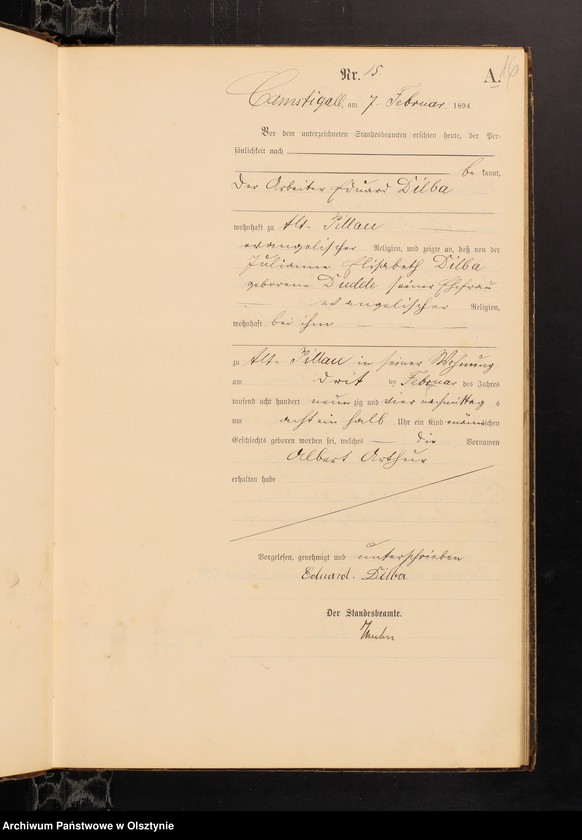 Nr. 15
A. 16
Camstigall, am 7. Februar 1894.
Vor dem unterzeichneten Standesbeamten erschien heute, der Per-
sönlichkeit nach
be kannt,
Der Arbeiter Eduard Dilba
wohnhaft zu Alt-Pillau
evangelischer Religion, und zeigte an, daß von der
Julianne Elisabeth Dilba
geborene Dudde seiner Ehefrau
evangelischer Religion,
wohnhaft bei ihm
zu Alt-Pillau in seiner Wohnung
am drit ten Februar des Jahres
tausend acht hundert neun zig und vier nachmittag s
um acht ein halb Uhr ein Kind männlichen
Geschlechts geboren worden sei, welches die Vornamen
Albert Arthur
erhalten habe
Vorgelesen, genehmigt und unterschrieben
Eduard Dilba
Der Standesbeamte.
Archiwum Państwowe w Olsztynie